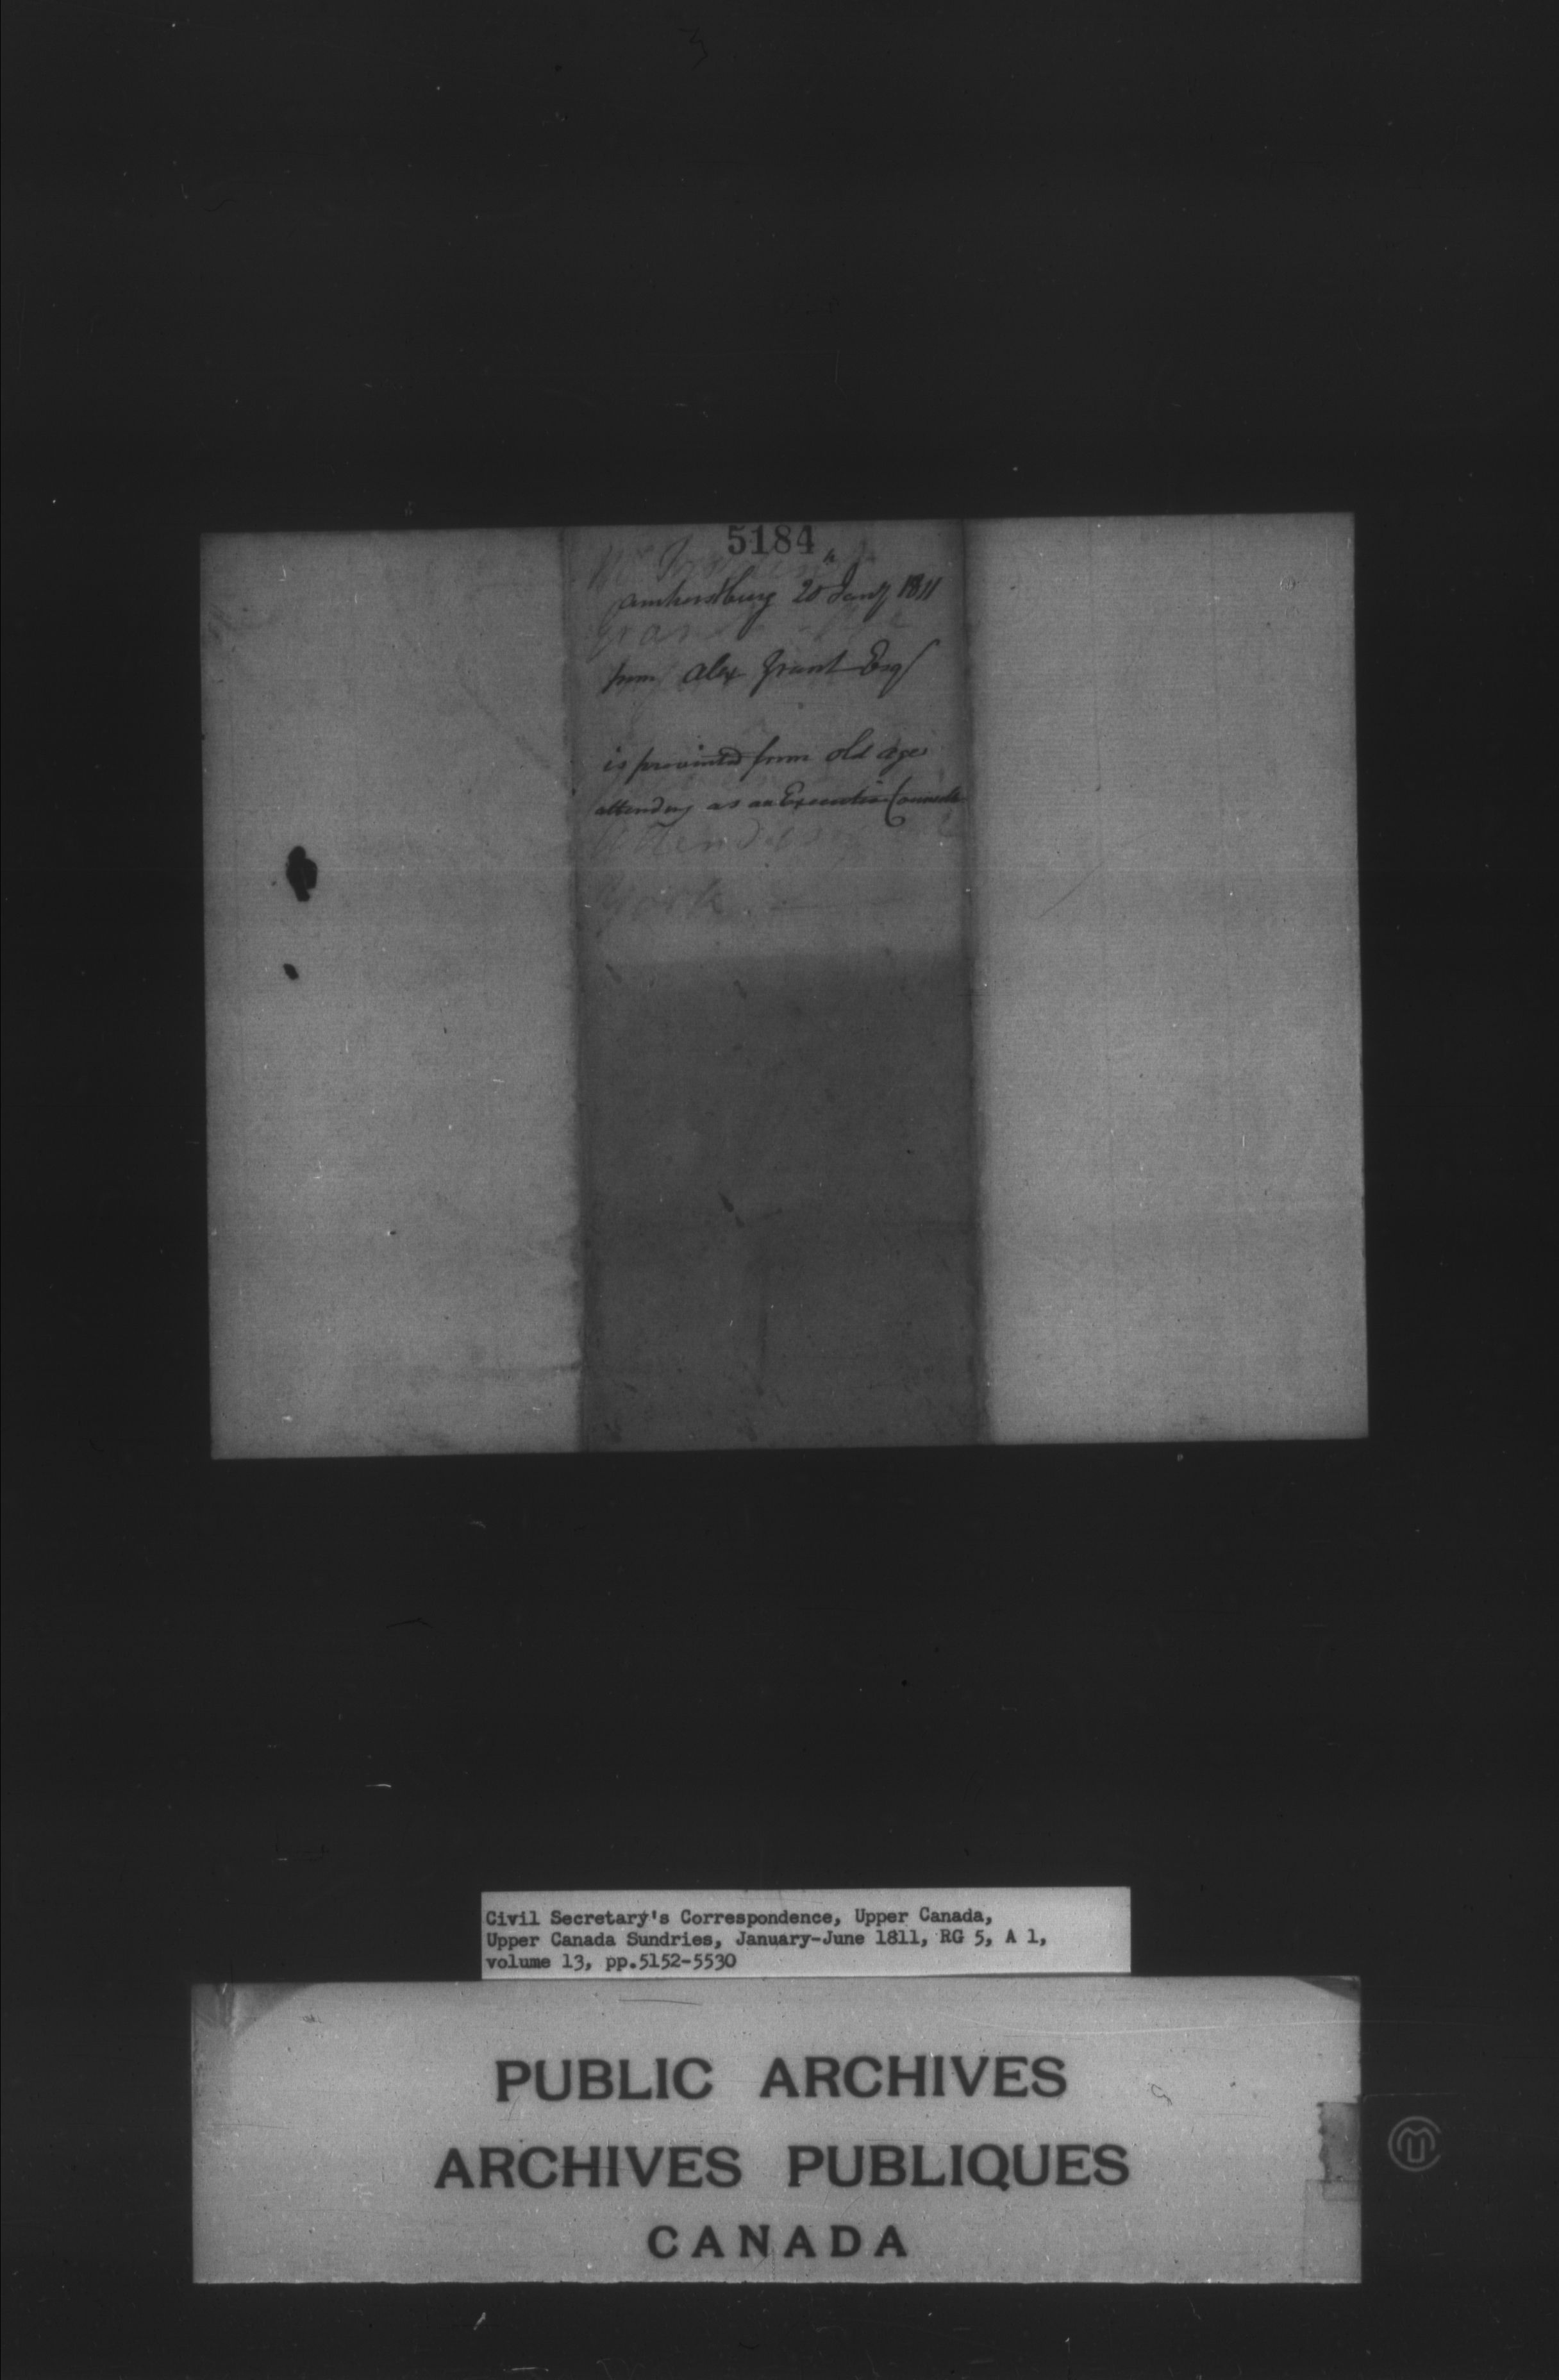 5184
Amherstburg 20th Jany 1811
from Alex Grant Esqr
is prevented from old age
attending as an Executive Councillor
York
Civil Secretary's Correspondence, Upper Canada,
Upper Canada Sundries, January-June 1811, RG 5, A 1,
volume 13, pp.5152-5530
PUBLIC ARCHIVES
ARCHIVES PUBLIQUES
CANADA